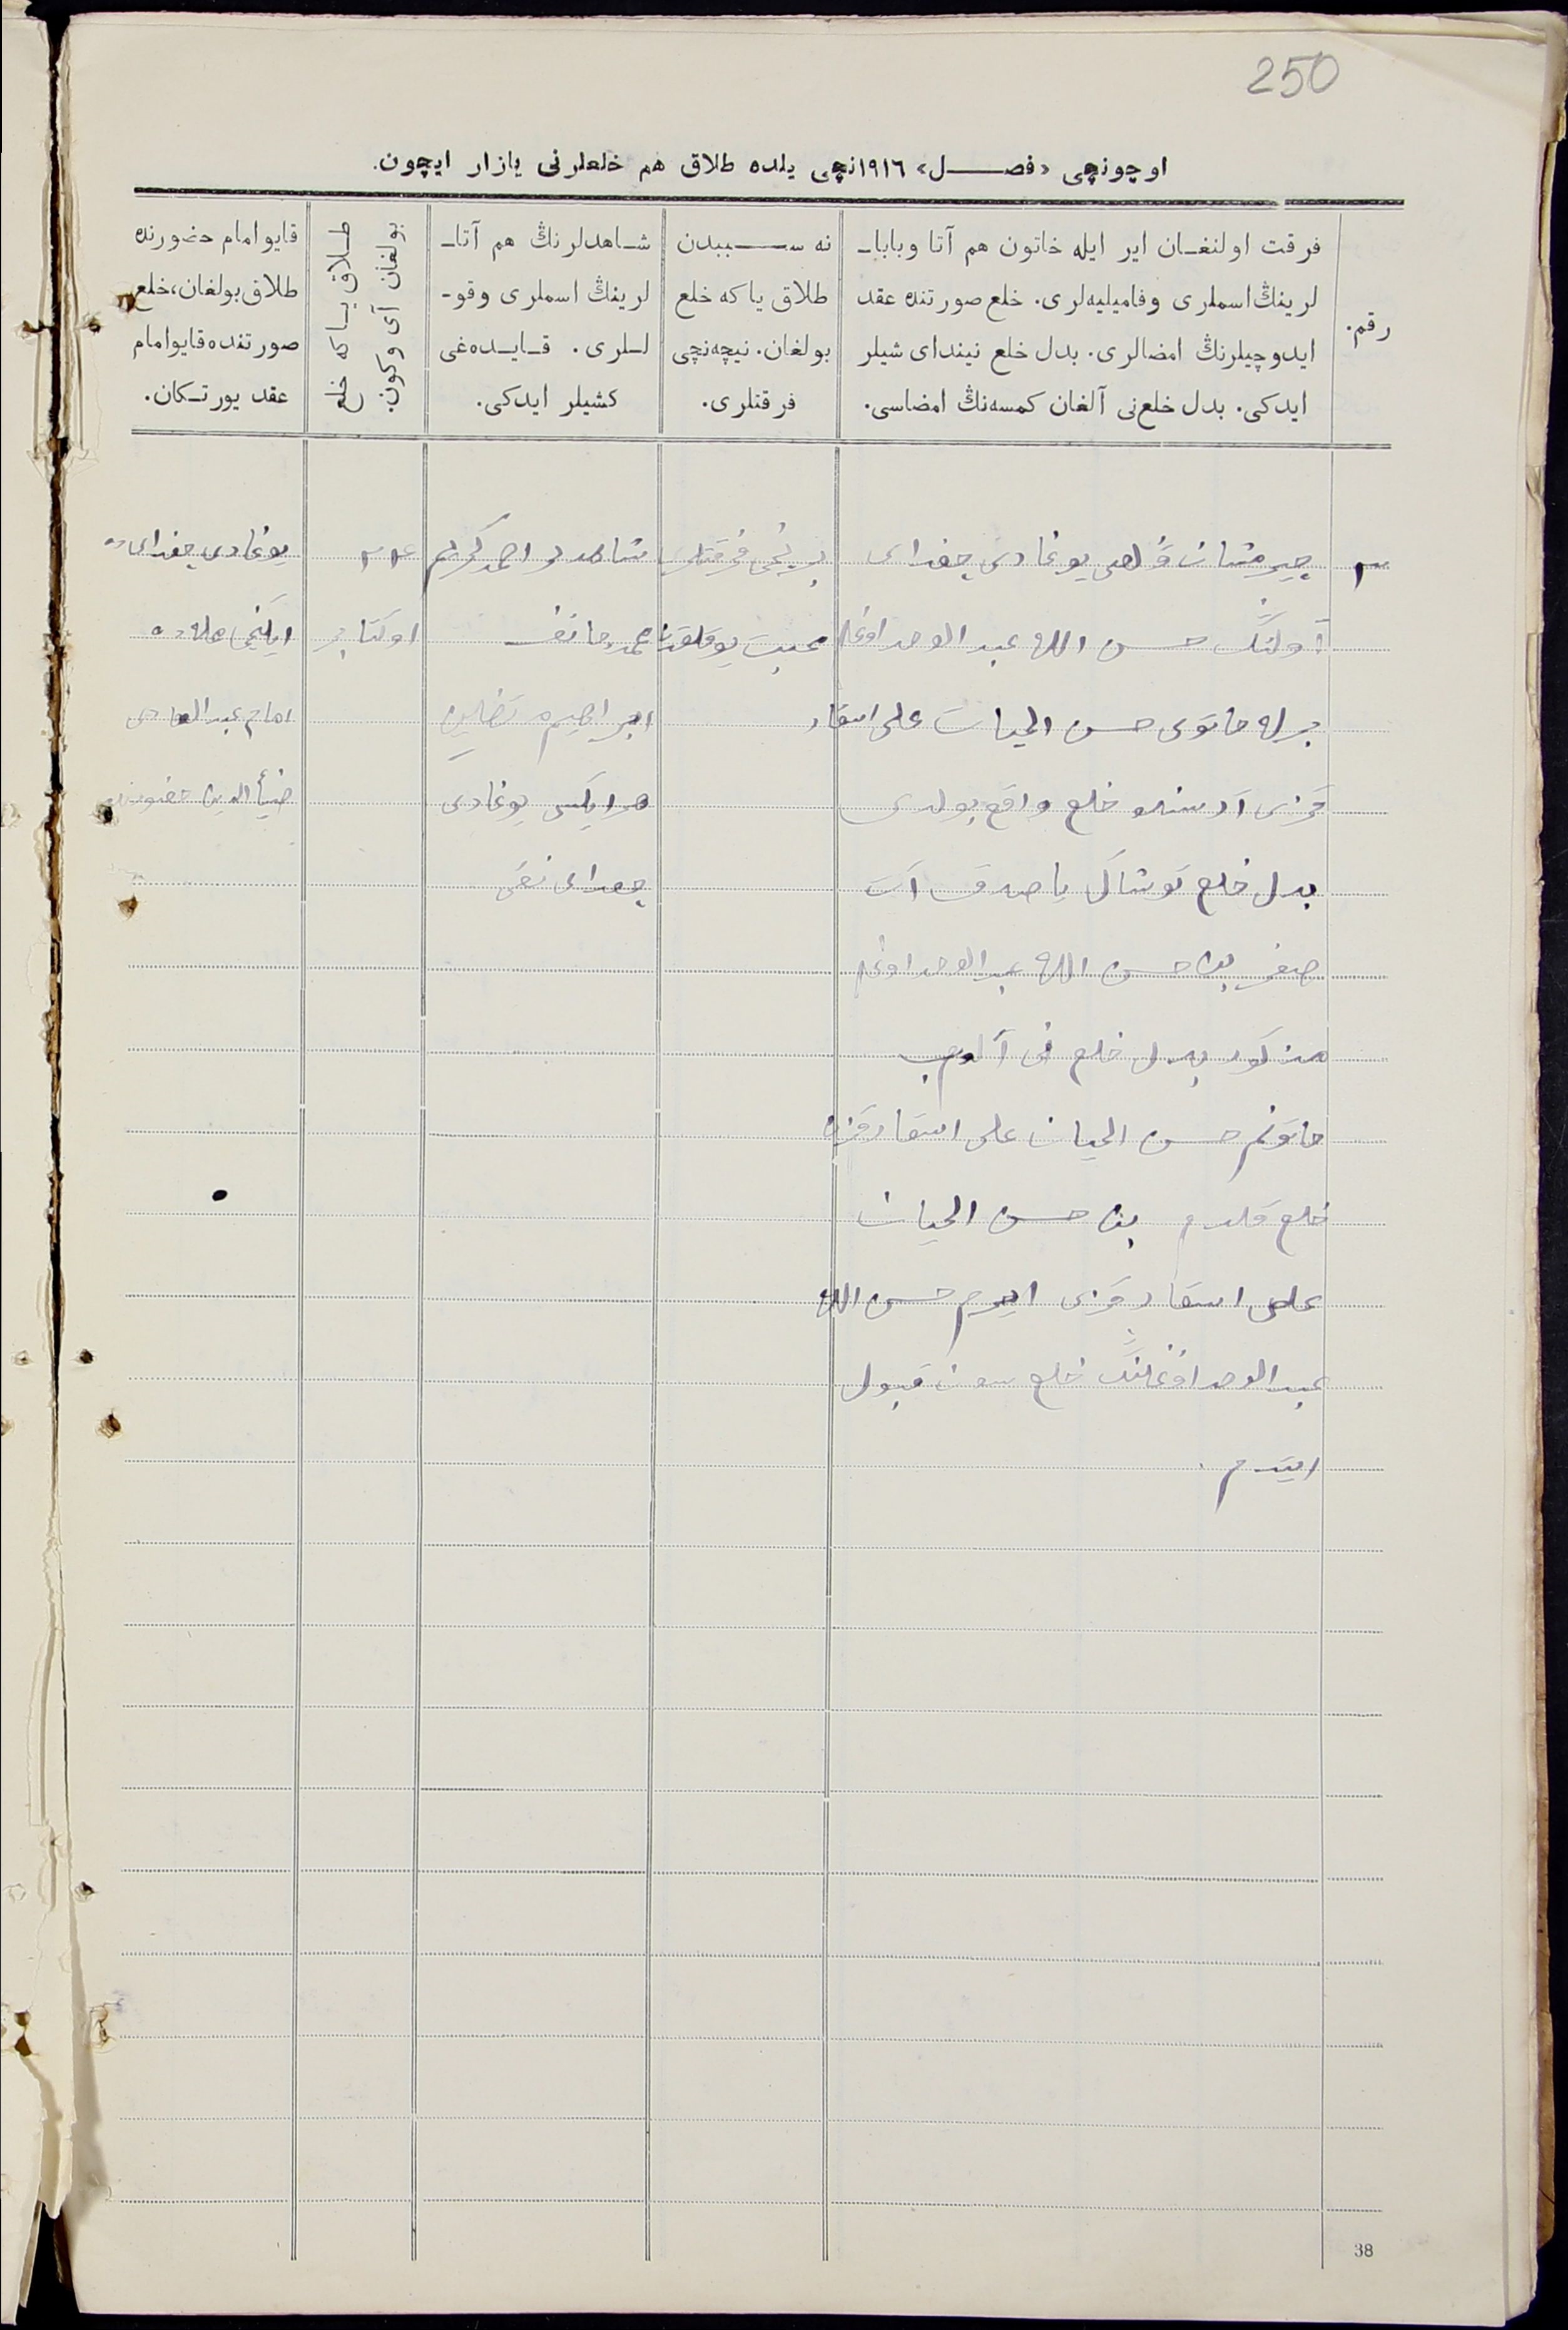 250
اوچونچی «فصـــل» ۱۹۱٦نچی یلده طلاق هم خلعلرنی یازار ایچون.
رقم.
فرقت اولنغـان ایر ایله خاتون هم آتا وبابا‌ـ
لرینڭ اسملری وفامیلیه‌لری. خلع صورتنده عقد
ایدوچیلرنڭ امضالری. بدل خلع نیندای شیلر
ایدکی. بدل خلع‌نی آلغان کمسه‌نڭ امضاسی.
نه ســـببدن
طلاق یا که خلع
بولغان. نیچه‌نچی
فرقتلری.
شـاهدلرنڭ هم آتا‌ـ
لرینڭ اسملری وقو‌ـ
لـلری. قـایـده‌غی
کشیلر ایدکی.
طـلاق یـا که خلع
بولغان آی و کون.
قایو امام حضورنده
طلاق بولغان، خلع
صورتنده قایو امام
عقد یورتـکان.
٣
یوغادی
آولنڭ حسن الله عبد الوحد اوغلی
برله خاتونی حسن الحیات علی اسقار
قزی آراسنده خلع واقع بولدی
بدل خلع توشاک یاصدق آت
بن حسن الله عبد الوحد اوغلی
مذکور بدل خلع نی آلوب
خاتونم حسن الحیات علی اسقار قزینه
خلع قلدم بن حسن الحیات
علی اسقار قزی ایرم حسن الله
عبد الوحد اوغلینڭ خلع سون قبول
ایتدم.
برنچی فرقتلری
محبت یوقلقدن
شاهدلر احمد کریم
ابراهیم
هر ایکسی یوغادی
٢٤
اوکتابر
یوغادی
ایکنچی محله ده
امام عبد الهادی
ضیأ الدین
38